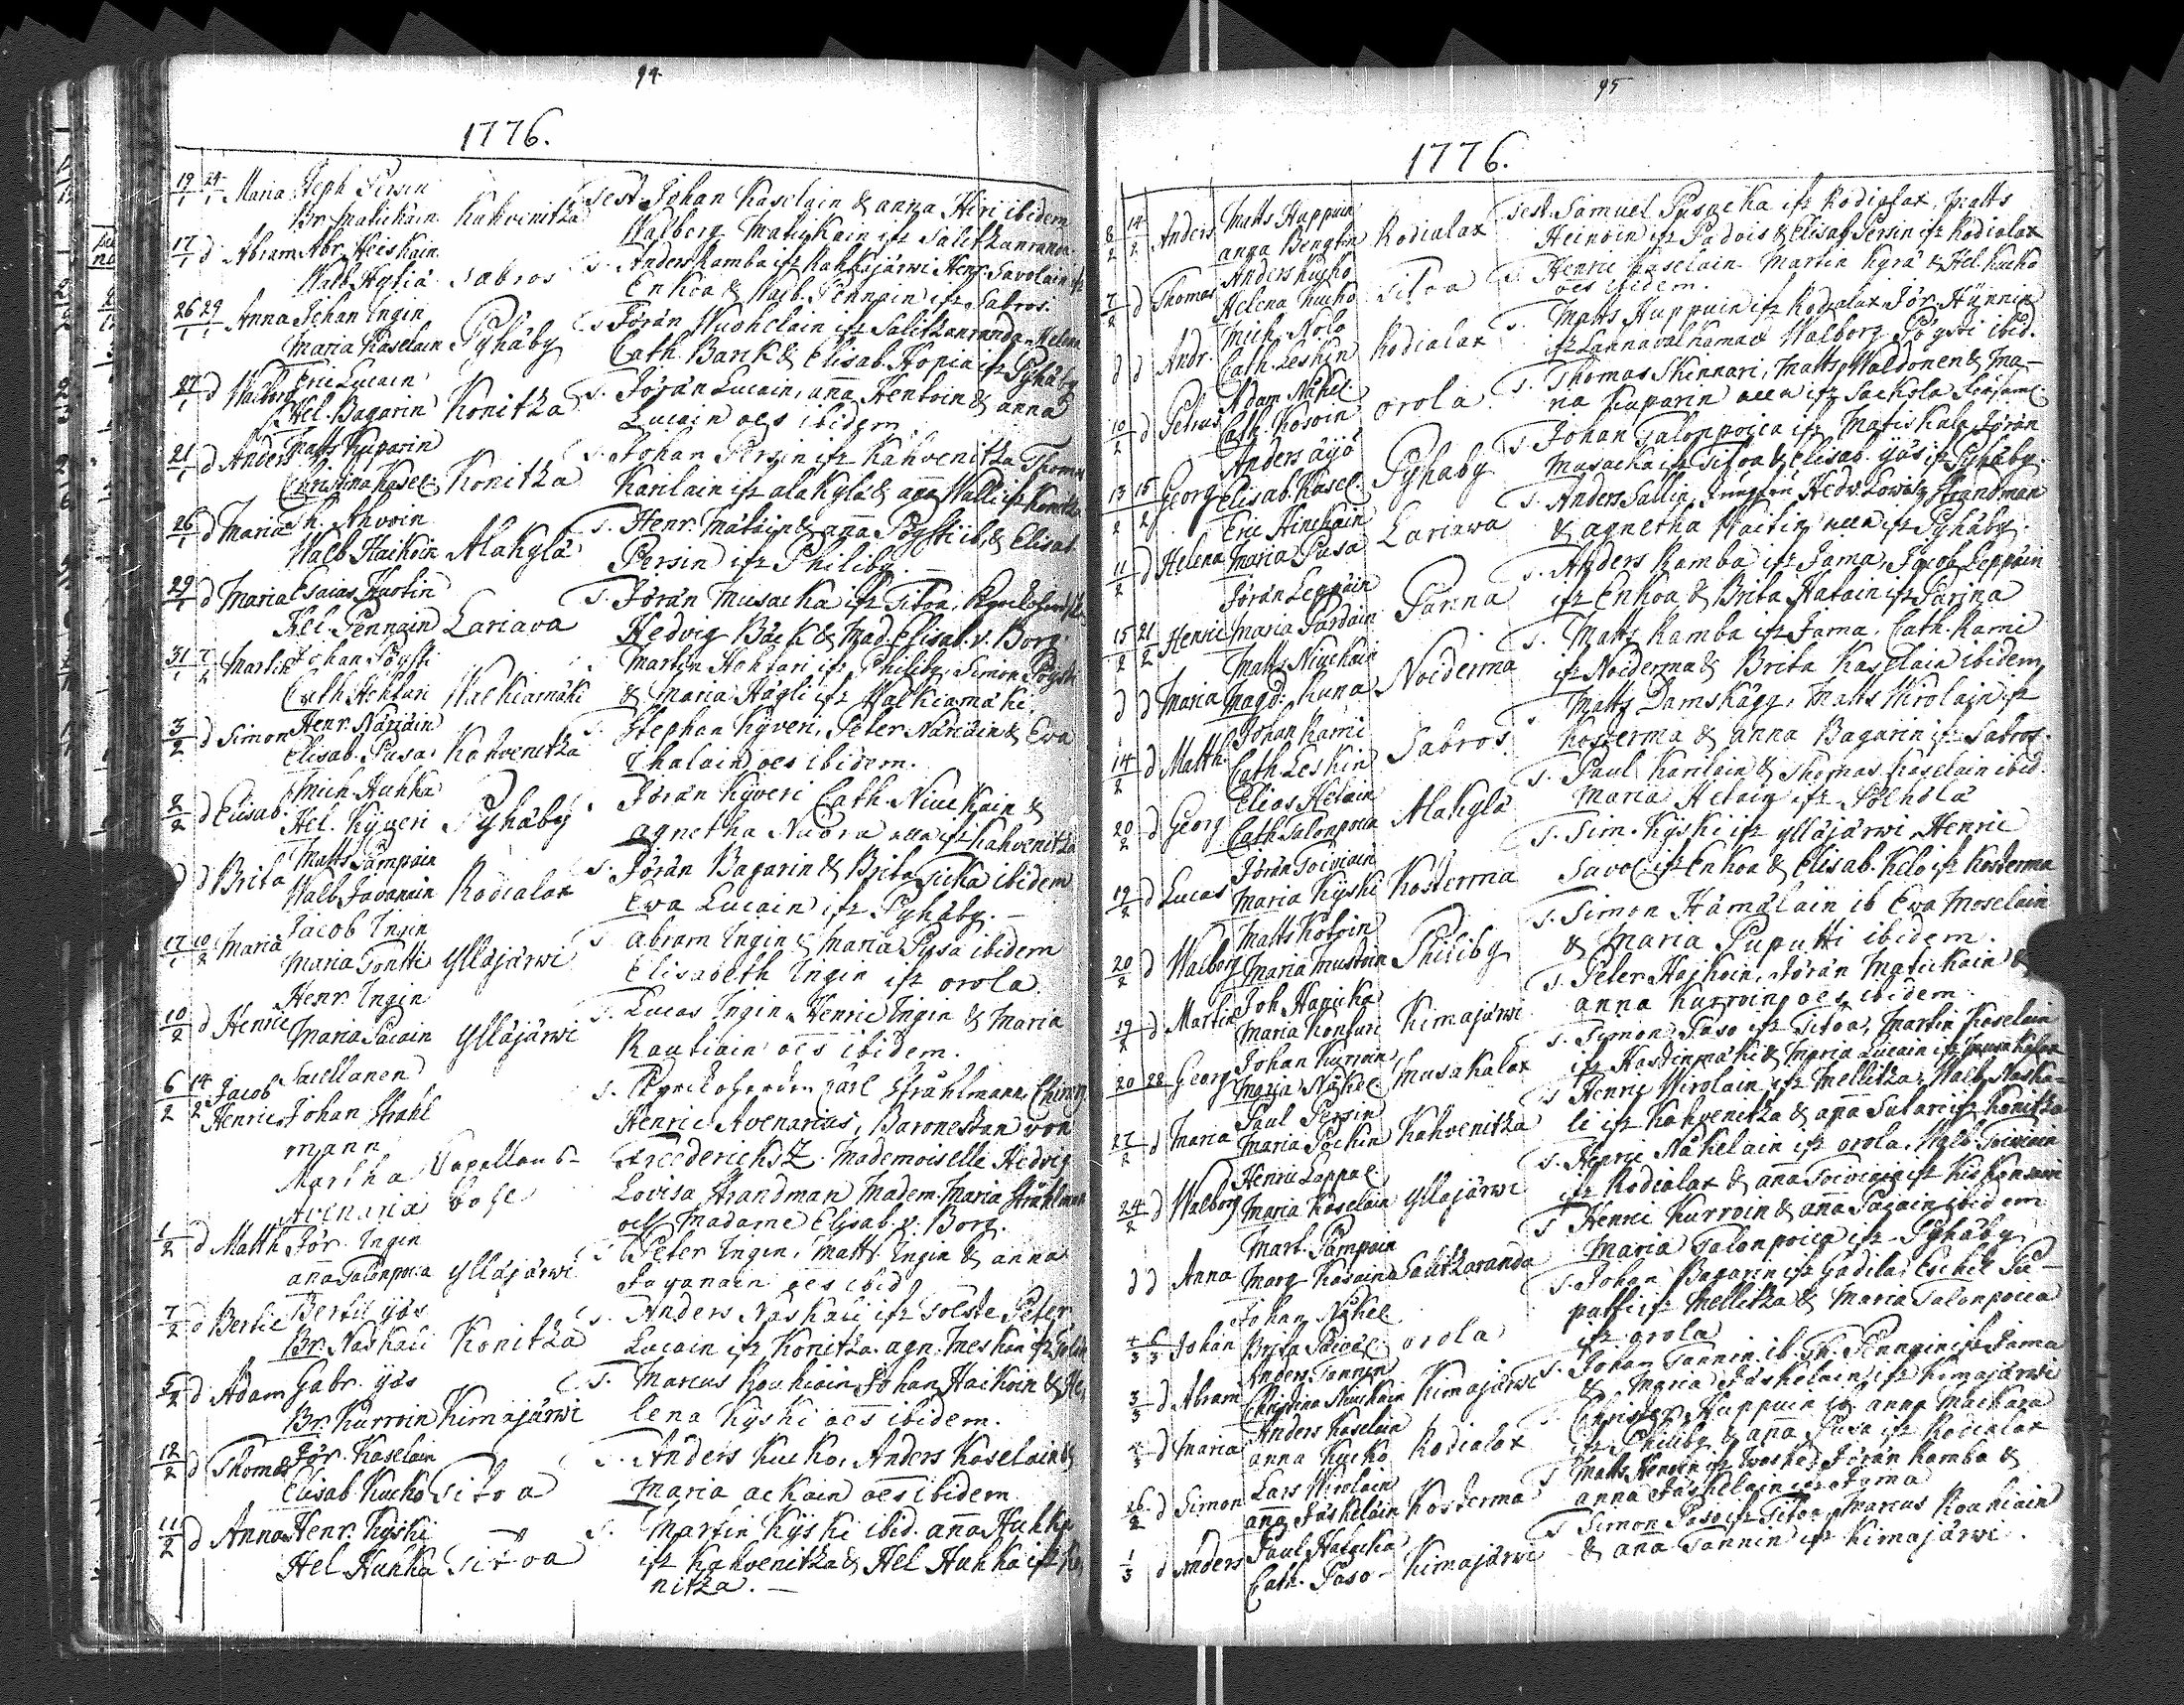 94
1776.
19/1 24/1 Maria Steph Persin
Br. Matikain Kahvenitza Test. Johan Kaselain & Anna Hiri ibidem
Walborg Matikain ifr Salitzanranda
17/1 d Abram Abr. Heiskain
Walb. Hytiä Sabros S. Anders Ramba ifr Kaukajärwi Henr. Savolain ifr
Enkoa & Walb. Pennain ifr Sabros.
26/1 29/1 Anna Johan Ingin
Maria Kaselain Pyhäby S. Jöran Wuohelain ifr Salitzanranda Helena
Cath. Barck & Elisab. Hopia ifr Pyhäby
27/1 d Walborg Eric Lucain
Hel. Bagarin Konitza S. Jöran Lucain, anna Hentoin & anna
Lucain oes ibidem
21/1 d Anders Matts Kuparin
Christina Kasel Konitza S. Johan Persin ifr Kahvenitza Thomas
Karilain ifr Alakylä & anna Walli ifr Konitza
26/1 d Maria Th. Ahvoin
Walb Haikoin Alakylä S. Henr. Mätäin & anna Pöysti ib. & Elisab.
Persin ifr Philiby.
29/1 d Maria Esaias Hustin
Hel. Pennain Lariava S. Jöran Musacka ifr Sitoa, Kyrckoherdsk
Hedvig Bäck & Mad. Elisab. v. Borg.
31/1 2/2 Martin Johan Pöysti
Cath. Hehtari Walkiamäki Martin Hehtari ifr Philiby, Simon Pöysti
& Maria Hägli ifr Walkiamäki.
3/2 d Simon Henr. Näriäin
Elisab. Pusa Kahvenitza S. Stephan Kyveri, Peter Näriäin & Ewa
Ihalain oes ibidem.
2/2 d Elisab. Mich Huhka
Hel. Kyveri Pyhäby Jöran Kyveri Cath. Niuckain &
Agnetha Nuora alla ifr Kahvenitza
d d Brita Matts Pämpäin
Walb Javanain Rodialax S. Jöran Bagarin & Brita Ticka ibidem
Ewa Lucain ifr Pyhäby.
17/1 10/2 Maria Jacob Ingin
Maria Tontti Ylläjärwi S. Abram Ingin & Maria Pusa ibidem
Elisabeth Ingin ifr Orola
10/2 d Henric Henr. Ingin
Maria Paiain Ylläjärwi S. Lucas Ingin Henric Ingin & Maria
Rautiain oes ibidem.
6/2 14/2 Jacob Sacellanen
Henric Johan Strahl S. Kyrckoherden Carl Strahlmann Chirurg
mann Henric Avenarius, Baronessan von
Martha Capellans Freedericksz Mademoiselle Hedvig
Avenaria Bohl Lovisa Strandman Madem. Maria Strahlmann
och Madame Elisab. v. Borg.
1/2 d Matth Jör. Ingin
anna Talonpoica Ylläjärwi S. Peter Ingin, Matts Ingin & anna
Javanain oes ibid
7/2 d Bertil Bertil Yös
Br. Naskali Konitza S. Anders Naskali ifr Tolste Peter
Lucain ifr Konitza. agn. Meskan ifr Tolste
5/2 d Adam Gabr. Yös
Br. Kurroin Kimajärwi S. Marcus Roukiain Johan Haikoin & He
lena Kyski oes ibidem.
12/2 d Thomas Jör. Kaselain
Elisab Kucko Sitoa S. Anders Kucko, Anders Kaselain &
Maria Ackain oes ibidem
11/2 d Anna Henr. Kyski
Hel Huhka Sitoa S. Martin Kyski ibid. anna Huhka
ifr Kahvenitza & Hel Huhka ifr Ko
nitza.
95
1776.
8/2 14/2 Anders Matts Huppuin
anna Bengtin Rodialax Test. Samuel Pusacka ifr Rodialax, Matts
Heinoin ifr Padois & Elisab Persin ifr Rodialax
7/2 d Thomas Anders Kucko
Helena Kucko Sitoa S. Henric Kaselain Martin Kyrä & Hel. Kucko
oes ibidem.
d d Andr. Mich. Nolo
Cath. Leskin Rodialax S. Matts Huppuin ifr Rodialax Jör. Hynnin
ifr Lannavalkama & Walborg Pöysti ibid.
10/2 d Petrus Adam Näkel
Cath. Kosoin Orola S. Thomas Skinnari, Matts Waldonen & Ma-
ria Kuparin alla ifr Sackola Kirjsam.
13/2 15/2 Georg Anders Äijö
Elisab. Kasel. Pyhäby S. Johan Talonpoica ifr Matiskala Jöran
Musacka ifr Sitoa & Elisab. Yös ifr Pyhäby.
11/2 d Helena Eric Hinckain
Maria Pusa Lariawa S. Anders Sallin Jungfru Hedv. Lowisa Strandman
& Agnetha Haitin alla ifr Pyhäby.
15/2 21/2 Henric Jöran Leppäin
Maria Pärdäin Parina S. Anders Ramba ifr Jama, Jacob Leppäin
ifr Enkoa & Brita Hatain ifr Parina
d d Maria Matts Niuckain
Magd. Kuna Noiderma S. Matts Ramba ifr Jama. Cath. Rami
ifr Noiderma & Brita Kaselain ibidem
14/2 d Matth. Johan Rami
Cath. Leskin Sabros Matts Damskägg, Matts Wirolain ifr
Kosterma & anna Bagarin ifr Sabros.
20/2 d Georg Elias Helain
Cath Talonpoica Alakylä S. Paul Karilain & Thomas Kaselain ibid.
Maria Helain ifr Pölhölä
19/2 d Lucas Jöran Toiviain
Maria Kyski Kosterma S. Sim. Kyski ifr Ylläjärwi Henric
Savol. ifr Enkoa & Elisab. Kilo ifr Kosterma
20/2 d Walborg Matts Kotoin
Maria Mustoin Philiby S. Simon Hämäläin ib Ewa Moselain
& Maria Puputti ibidem.
19/2 d Martin Joh. Hanicka
Maria Konturi Kimajärwi S. Peter Haikoin, Jöran Matickain &
anna Kurroin oes ibidem
20 28 Georg Johan Kurroin
Maria Näkel Musakalax S. Simon Paso ifr Sitoa, Martin Kaselain
ifr Hastinmäki & Maria Lucain ifr Musakalax
27/2 d Maria Paul Persin
Maria Pöckin Kahvenitza S. Henric Wirolain ifr Mellitza, Walb. Naska-
li ifr Kahvenitza & anna Sutari ifr Konitza
24/2 d Walborg Henric Lappal.
Maria Kaselain Ylläjärwi S. Henric Näkelain ifr Orola, Walb. Toiviain
ifr Rodialax & anna Toiviain ifr Kiskonsaari
d d Anna Mart. Pämpäin
Marg Kosain Salitzaranda S Henric Kurroin & anna Pajain ibidem
Maria Talonpoica ifr Pyhäby
4/3 6/3 Johan Johan Näkel
Brita Paiäl. Orola S. Johan Bagarin ifr Gadila, Eschel Pu-
patti ifr Mellitza & Maria Talonpoica
ifr Orola
3/3 d Abram Anders Tannin
Christina Niuckain Kimajärwi S. Johan Tannin ib. Th. Pennain ifr Jama
& Maria Jäskeläin ifr Kimajärwi
4/3 d Maria Anders Kaselain
anna Kucko Rodialax Christer Huppuin ib. anna Mackara
ifr Philiby & anna Pusa ifr Rodialax
26/2 d Simon Lars Wirolain
anna Jäskeläin Kosterma S Matts Kensin ifr Iwaska Jöran Ramba &
anna Jäskelain ifr Jama
1/3 d Anders Paul Hatacka
Cath. Paso Kimajärwi S Simon Paso ifr Sitoa, Marcus Roukiain
& ana Tannin ifr Kimajärwi.